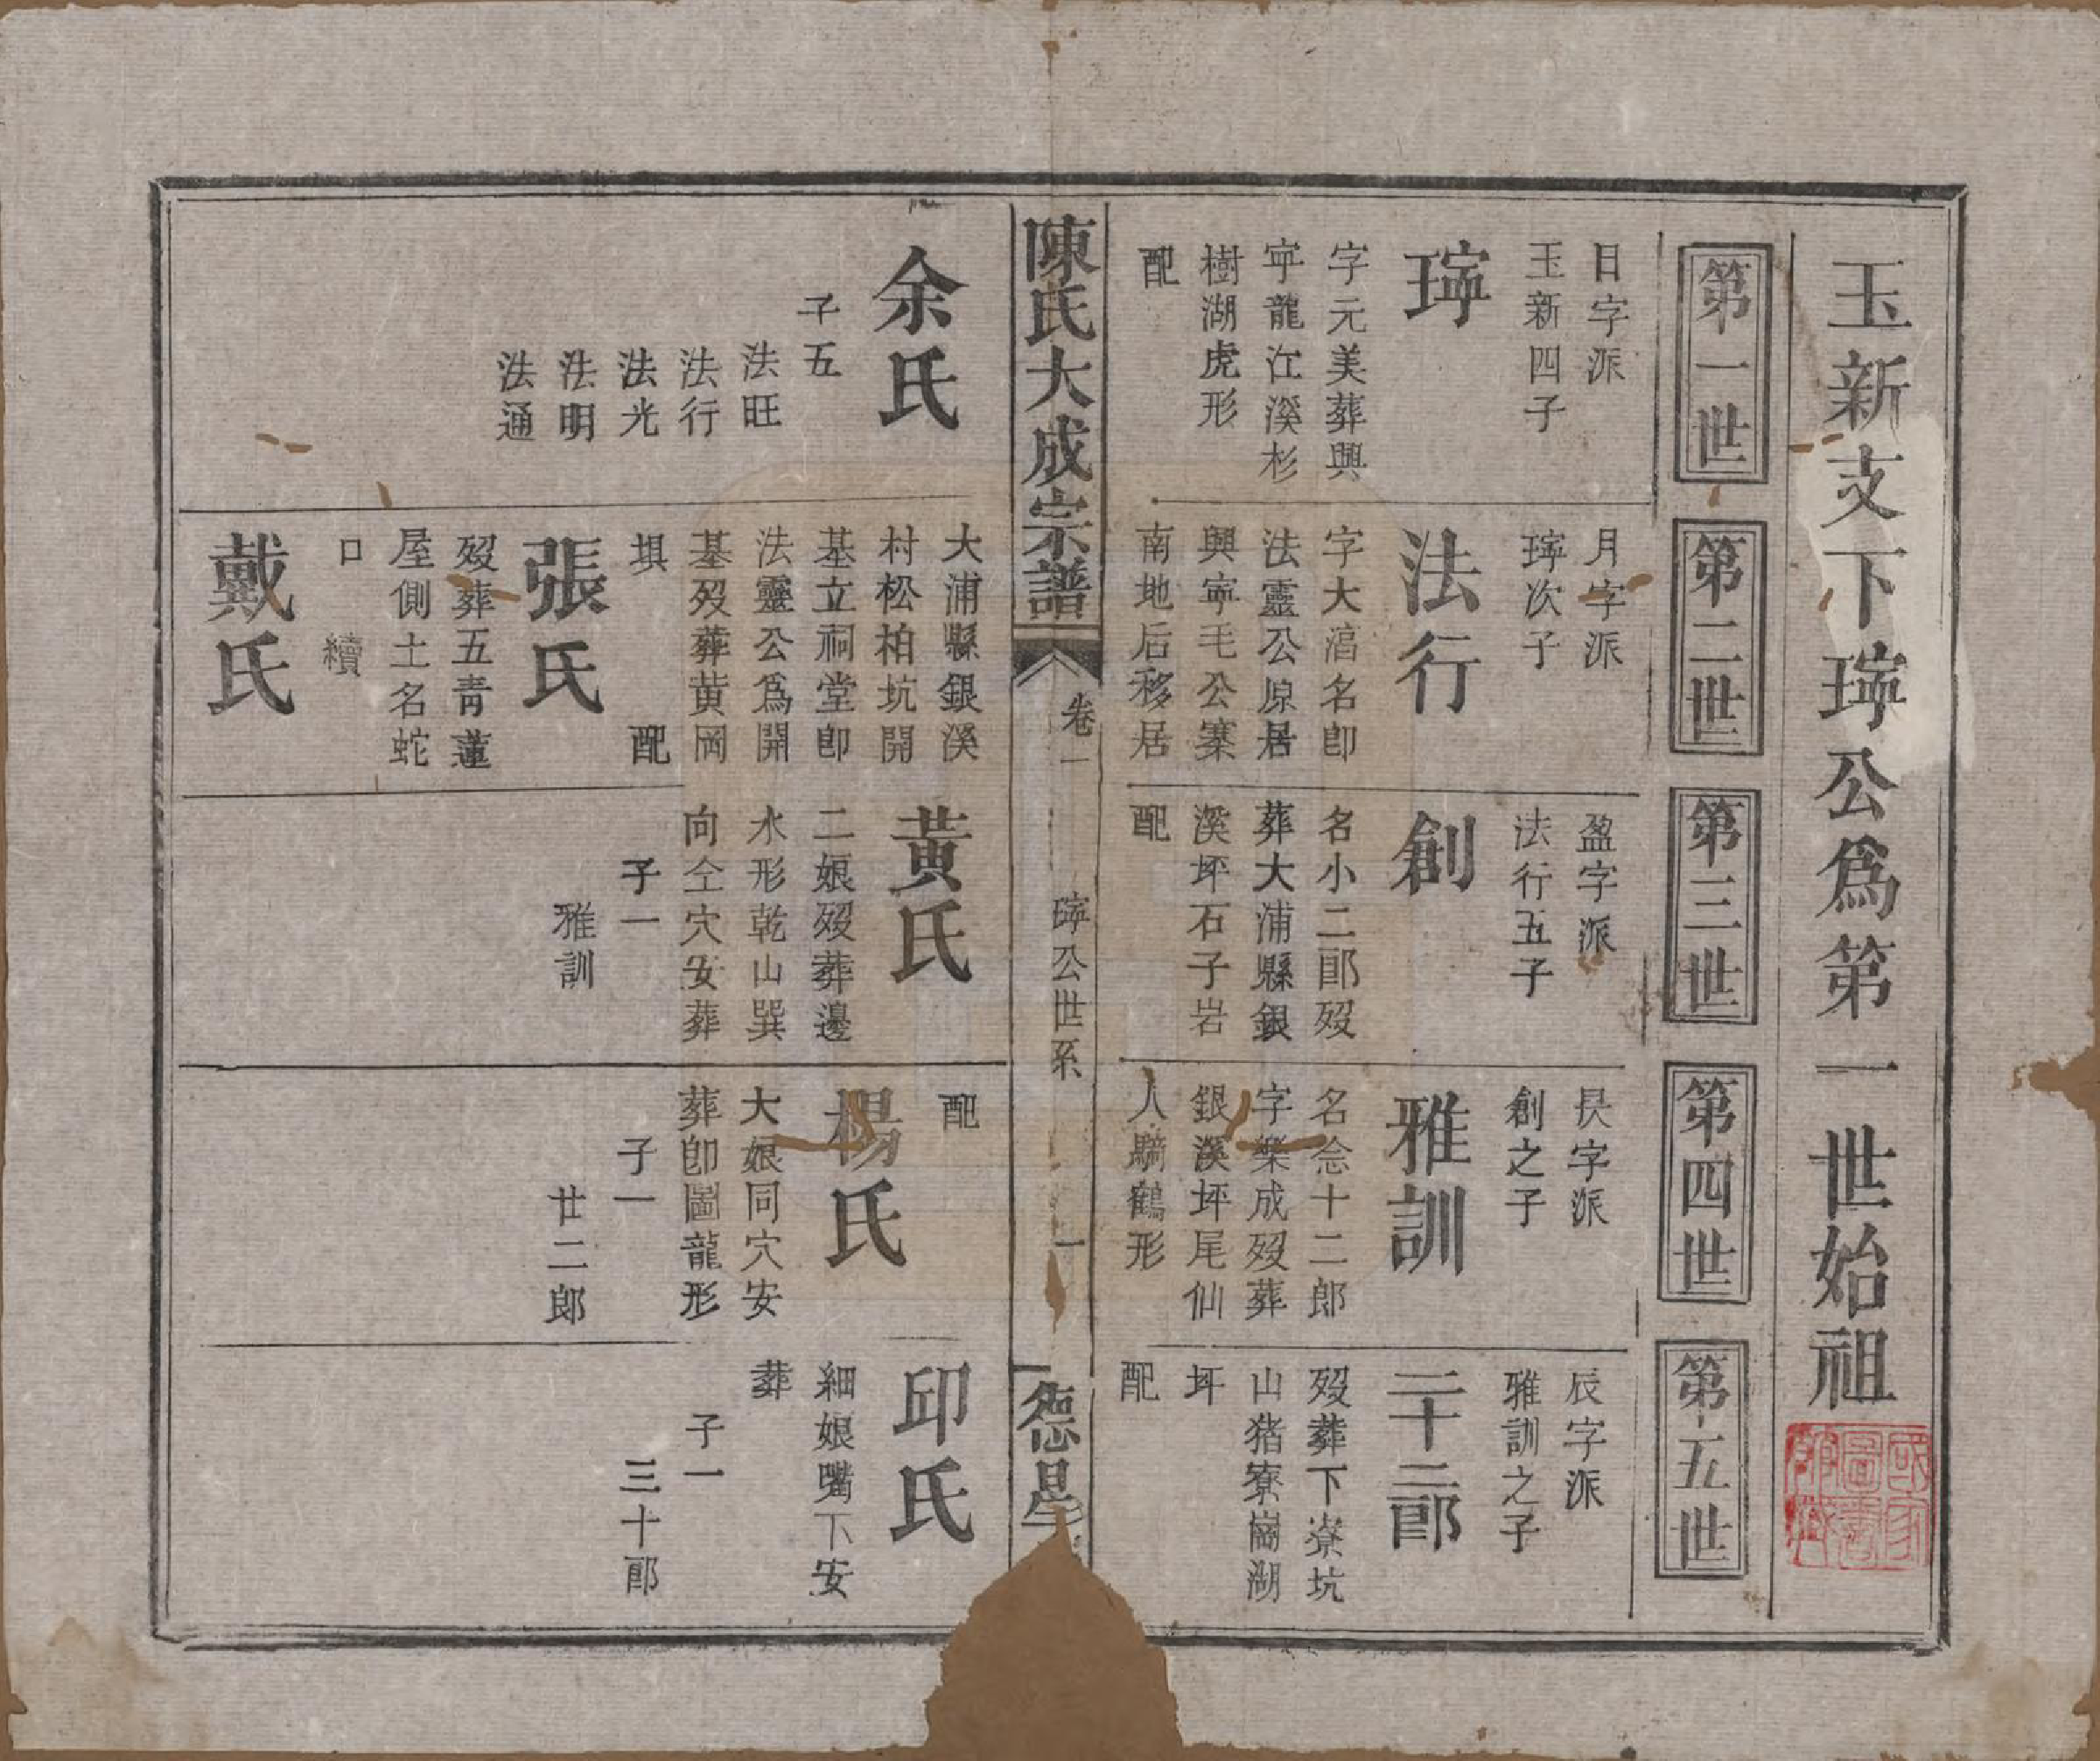 玉新支下㻸公爲第一世始祖
國家圖書館藏
第一世
日字派
玉新四子
㻸
字元美葬興
寜龍江溪杉
樹湖虎形
配
第二世
月字派
㻸次子
法行
字大滔名卽
法靈公原居
興寧毛公寨
南地后移居
第三世
盈字派
法行五子
創
名小二郎歿
葬大浦縣銀
溪坪石子岩
配
第四世
昃字派
創之子
雅訓
名念十二郎
字樂成歿葬
銀溪坪尾仙
人騎鶴形
第五世
辰字派
雅訓之子
二十二郎
歿葬下寮坑
山猪寮崗湖
坪
配
陳氏大成宗譜
卷一
㻸公世系
一
德星
余氏
子五
法旺
法行
法光
法明
法通
大浦縣銀溪
村松柏坑開
基立祠堂卽
法靈公爲開
基歿葬黄岡
埧 配
張氏
歿葬五青蓮
屋側土名蛇
口 續
戴氏
黃氏
二娘歿葬邊
水形乾山巽
向仝穴安葬
子一
雅訓
配
楊氏
大娘同穴安
葬卽圖龍形
子一
廿二郎
邱氏
細娘嘴下安
葬
子一
三十郎